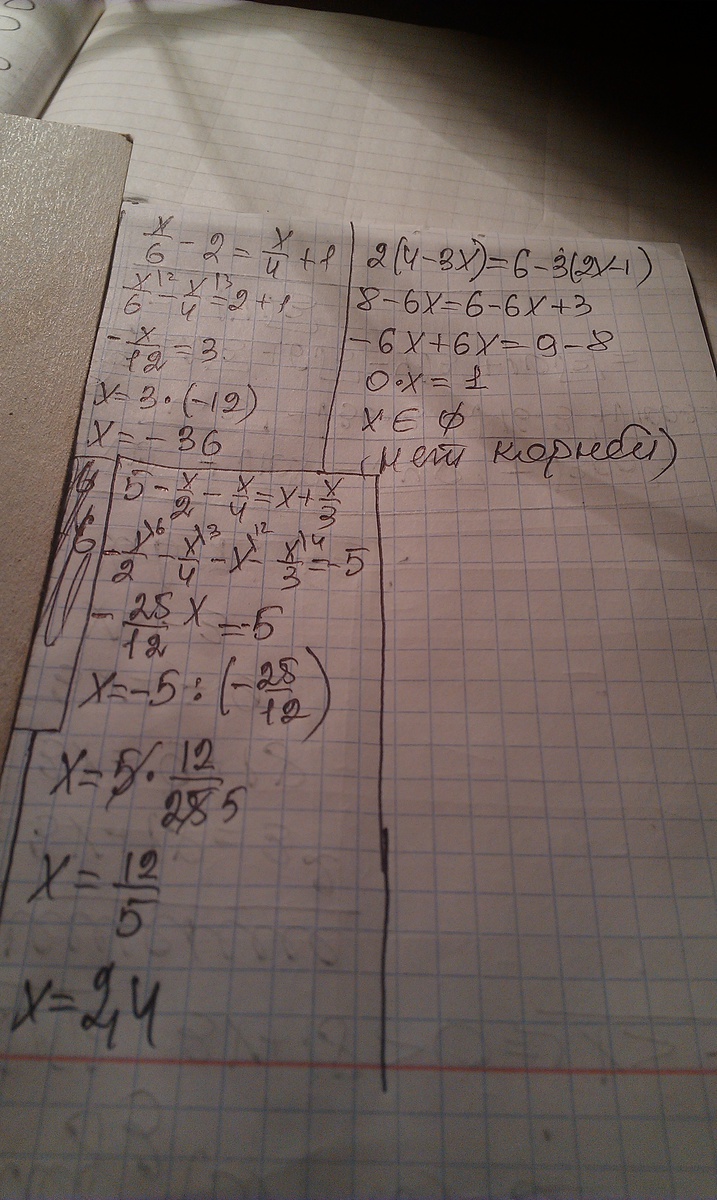 x/6 - 2 = x/4 + 1
x/6^12 - x/4^13 = 2 + 1
-x/12 = 3
x = 3 · (-12)
x = -36
2(4-3x)=6-3(2x-1)
8-6x=6-6x+3
-6x+6x=9-8
0·x=1
x ∈ ∅
(нет корней)
5 - x/2 - x/4 = x + x/3
-x/2^6 - x/4^3 - x^12 - x/3^14 = -5
-25/12 x = -5
x = -5 : (-25/12)
x = 5 · 12/25 5
x = 12/5
x = 2,4